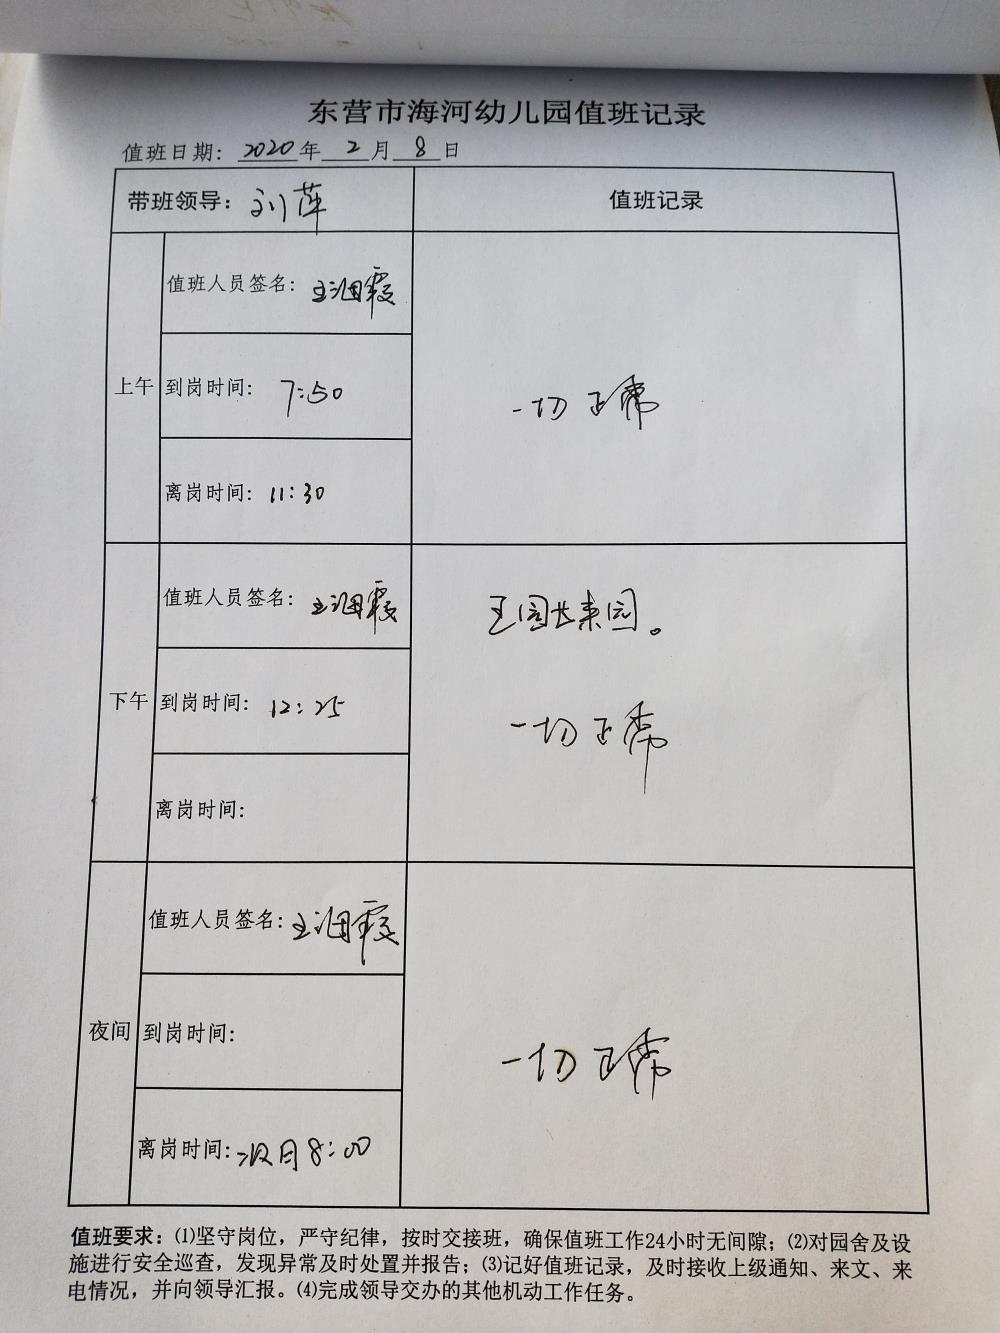 东营市海河幼儿园值班记录
值班日期: 2020年 2月 8日
带班领导: 刘萍
值班记录
上午
值班人员签名: 王汨霞
到岗时间: 7:50
离岗时间: 11:30
一切正常
下午
值班人员签名: 王汨霞
到岗时间: 12:25
离岗时间:
王园长来园。
一切正常
夜间
值班人员签名: 王汨霞
到岗时间:
离岗时间: 次日8:00
一切正常
值班要求: ⑴坚守岗位，严守纪律，按时交接班，确保值班工作24小时无间隙；⑵对园舍及设
施进行安全巡查，发现异常及时处置并报告；⑶记好值班记录，及时接收上级通知、来文、来
电情况，并向领导汇报。⑷完成领导交办的其他机动工作任务。